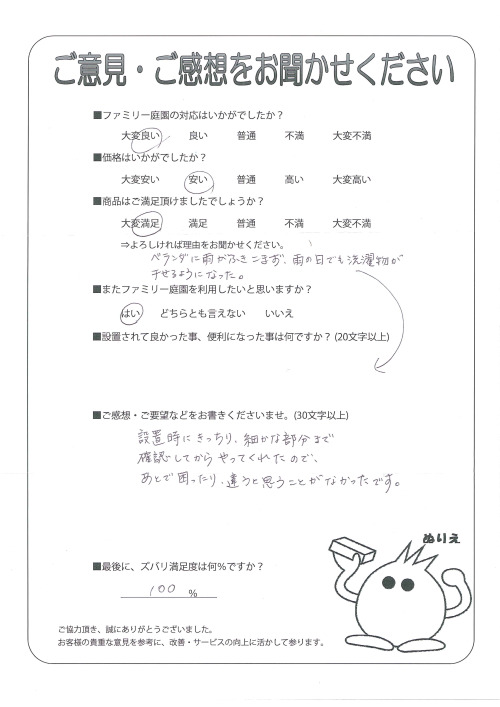 ご意見・ご感想をお聞かせください
■ファミリー庭園の対応はいかがでしたか？
大変良い 良い 普通 不満 大変不満
■価格はいかがでしたか？
大変安い 安い 普通 高い 大変高い
■商品はご満足頂けましたでしょうか？
大変満足 満足 普通 不満 大変不満
⇒よろしければ理由をお聞かせください。
ベランダに雨がふきこまず、雨の日でも洗濯物が
干せるようになった。
■またファミリー庭園を利用したいと思いますか？
はい どちらとも言えない いいえ
■設置されて良かった事、便利になった事は何ですか？(20文字以上)
■ご感想・ご要望などをお書きくださいませ。(30文字以上)
設置時にきっちり、細かな部分まで
確認してからやってくれたので、
あとで困ったり、違うと思うことがなかったです。
ぬりえ
■最後に、ズバリ満足度は何％ですか？
100 %
ご協力頂き、誠にありがとうございました。
お客様の貴重な意見を参考に、改善・サービスの向上に活かして参ります。